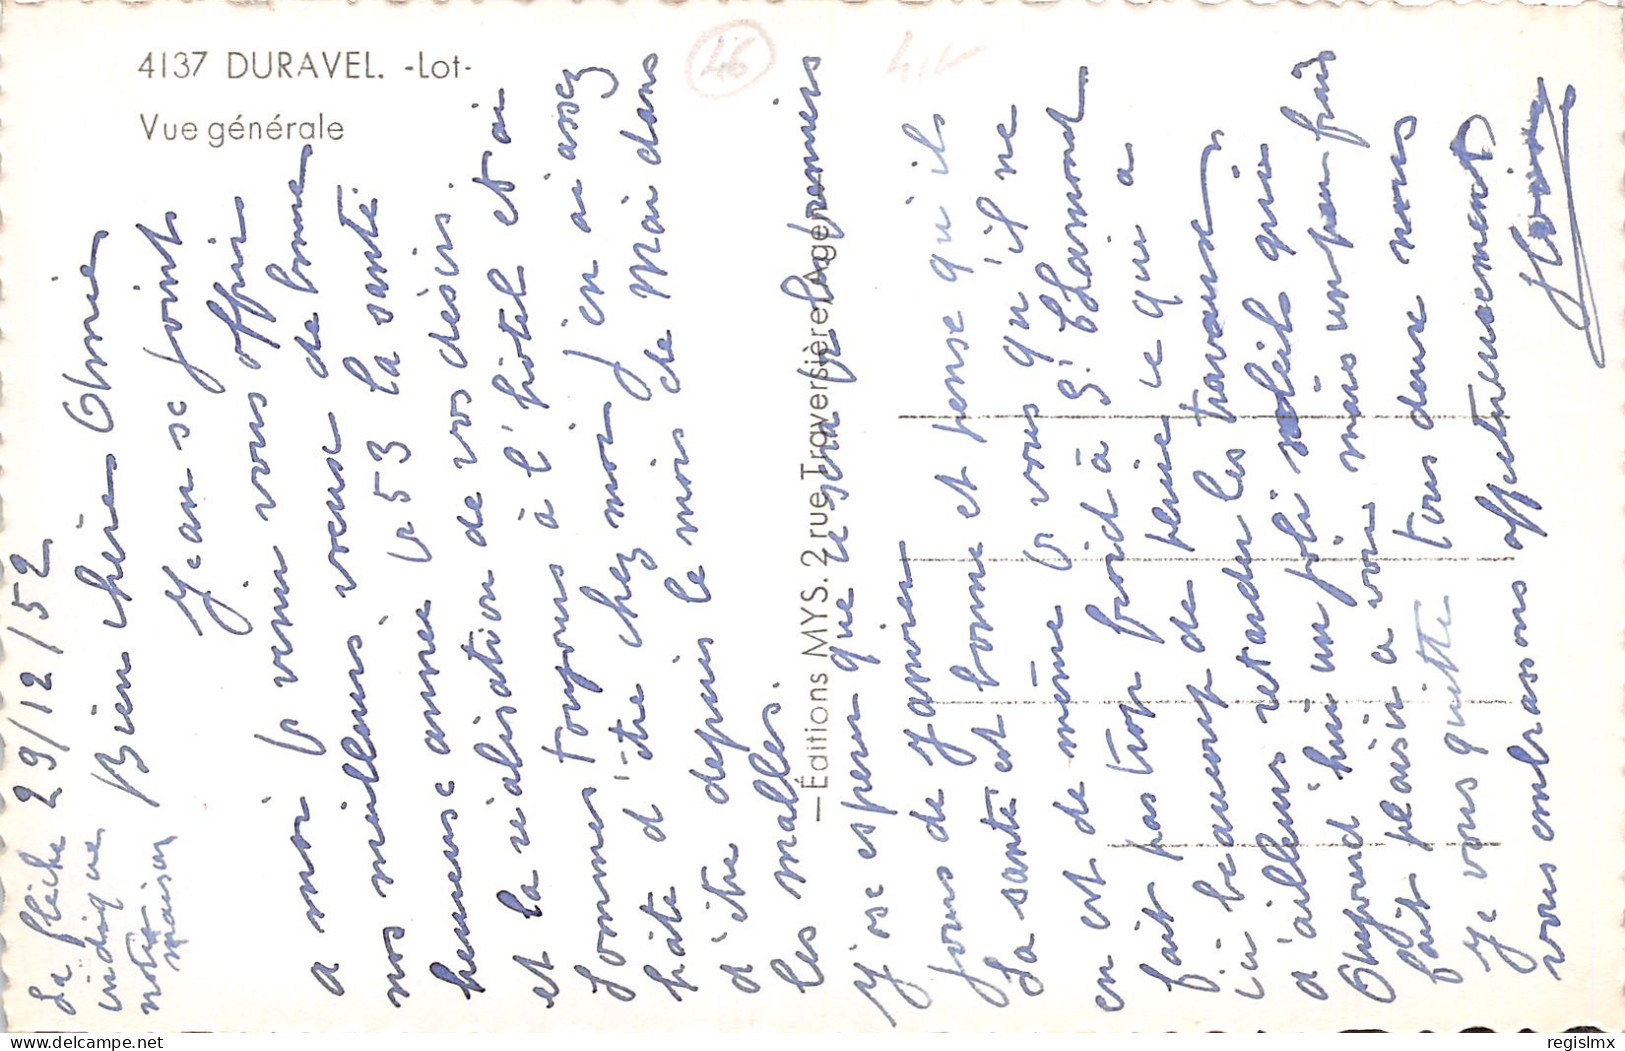 4137 DURAVEL. -Lot-
Vue générale
46
29/12/52
La flèche
indique
notre
maison
Bien chère Annie
Jean se joint
a moi pr venir vous offrir
nos meilleurs vœux de bonne
heureuse année pr 53 la santé
et la réalisation de vos désirs.
Sommes toujours à l'hôtel et ai
hâte d'être chez moi j'en ai assez
d'être depuis le mois de Mai dans
les malles.
J'ose espérer que ce sera pr les premiers
jours de Janvier
La santé est bonne et pense qu'il
en est de même pr vous qu'il ne
fait pas trop froid à St Chamond
ici beaucoup de pluie ce qui a
d'ailleurs retarder les travaux
Aujourd'hui un joli soleil qui
fait plaisir a voir mais un peu frais
Je vous quitte tous deux nous
vous embrassons affectueusement
Editions MYS. 2 rue Traversière Agen
regislmx
delcampe.net